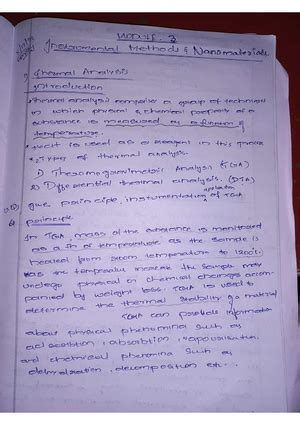 MODULE-3
Instrumental Methods & Nanomaterials
Thermal Analysis
Introduction
Thermal analysis comprises a group of techniques
in which physical & chemical property of a
substance is measured as a function of
temperature.
Heat is used as a reagent in this process
2 Types of thermal analysis.
1) Thermogravimetric Analysis (TGA)
2) Differential thermal analysis. (DTA)
give principle, instrumentation of TGA
principle
In TGA, mass of the substance is monitored
as a fn of temperature as the sample is
heated from room temperature to 1200°c.
As the temperature increase the sample may
undergo physical or chemical changes accom-
panied by weight loss. TGA is used to
determine the thermal stability of a material
TGA can provide information
about physical phenomina such as
adsorption, absorbtion, vapourisation.
and chemical phenomina such as
dehydration, decomposition etc...